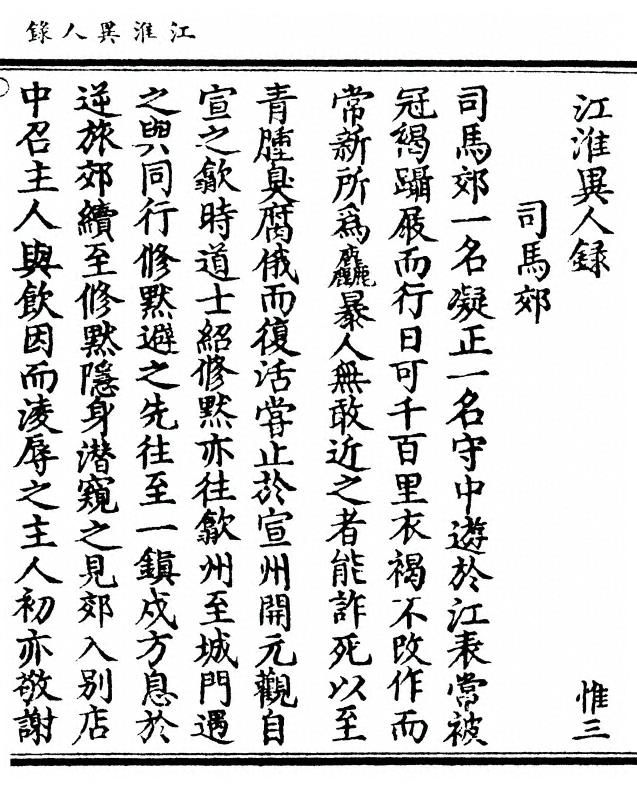 江淮異人錄
江淮異人録 惟三
司馬郊
司馬郊一名凝正一名守中遊於江表常被
冠褐躡屐而行日可千百里衣褐不改作而
常新所爲麤暴人無敢近之者能詐死以至
青腫臭腐俄而復活甞止於宣州開元觀自
宣之歙時道士紹修默亦往歙州至城門遇
之與同行修默避之先往至一鎮戍方息於
逆旅郊續至修默隱身潜窺之見郊入别店
中召主人與飲因而淩辱之主人初亦敬謝